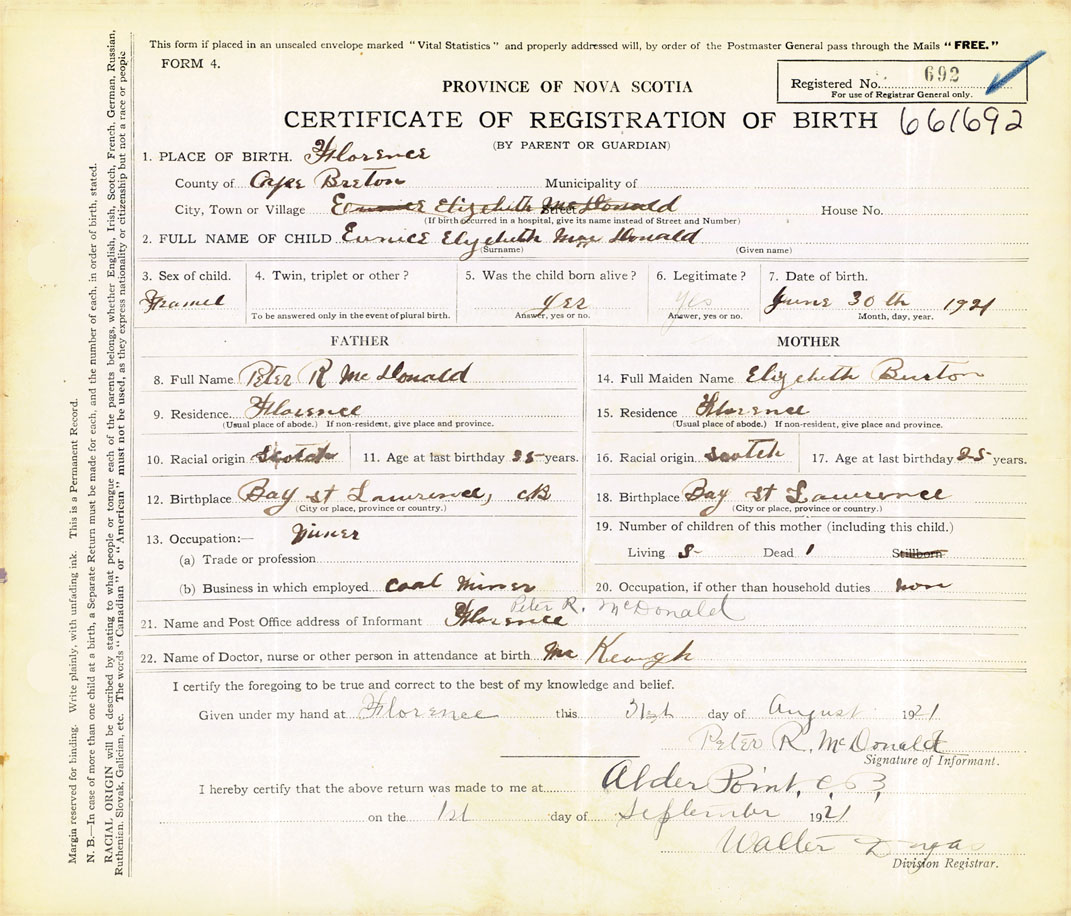 This form if placed in an unsealed envelope marked "Vital Statistics" and properly addressed will, by order of the Postmaster General pass through the Mails "FREE."
FORM 4.
Registered No. 692
For use of Registrar General only.
PROVINCE OF NOVA SCOTIA
CERTIFICATE OF REGISTRATION OF BIRTH 661692
(BY PARENT OR GUARDIAN)
1. PLACE OF BIRTH. Florence
County of Cape Breton Municipality of
City, Town or Village Eunice Elizebeth McDonald Street House No.
(If birth occurred in a hospital, give its name instead of Street and Number)
2. FULL NAME OF CHILD Eunice Elyzebeth Mac Donald
(Surname) (Given name)
3. Sex of child. 4. Twin, triplet or other? 5. Was the child born alive? 6. Legitimate? 7. Date of birth.
Framel yer Yes June 30th 1921
To be answered only in the event of plural birth. Answer, yes or no. Answer, yes or no. Month, day, year.
FATHER MOTHER
8. Full Name Peter R McDonald
9. Residence Florence
(Usual place of abode.) If non-resident, give place and province.
10. Racial origin Scotch 11. Age at last birthday 35 years.
12. Birthplace Bay St Lawrence, CB
(City or place, province or country.)
13. Occupation:— Miner
(a) Trade or profession
(b) Business in which employed Coal Miner
14. Full Maiden Name Elyzebeth Burton
15. Residence Florence
(Usual place of abode.) If non-resident, give place and province.
16. Racial origin scotch 17. Age at last birthday 25 years.
18. Birthplace Bay St Lawrence
(City or place, province or country.)
19. Number of children of this mother (including this child.)
Living 5 Dead 1 Stillborn
20. Occupation, if other than household duties non
21. Name and Post Office address of Informant Peter R. McDonald Florence
22. Name of Doctor, nurse or other person in attendance at birth Keough
I certify the foregoing to be true and correct to the best of my knowledge and belief.
Given under my hand at Florence this 31st day of August 1921
Peter R. McDonald
Signature of Informant.
I hereby certify that the above return was made to me at Alder Point, C.B,
on the 1st day of September 1921
Walter Dugas
Division Registrar.
Margin reserved for binding. Write plainly, with unfading ink. This is a Permanent Record.
N. B.—In case of more than one child at a birth, a Separate Return must be made for each, and the number of each, in order of birth, stated.
RACIAL ORIGIN will be described by stating to what people or tongue each of the parents belongs, whether English, Irish, Scotch, French, German, Russian,
Ruthenian, Slovak, Galician, etc. The words "Canadian" or "American" must not be used, as they express nationality or citizenship but not a race or people